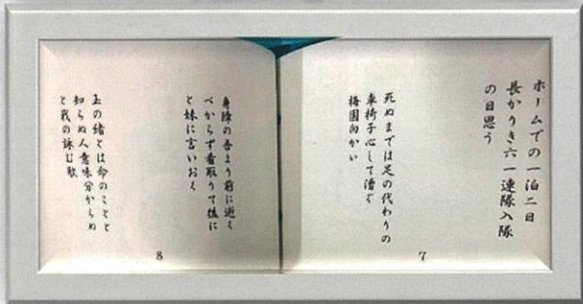 ホームでの一泊二日
長かりき六一連隊入隊
の日思う
死ぬまでは足の代わりの
車椅子心して漕ぐ
梅園向かい
身障の吾より前に逝く
べからず看取りて後に
と妹に言いおく
玉の緒とは命のことと
知らぬ人意味分からぬ
と我の詠む歌
7
8